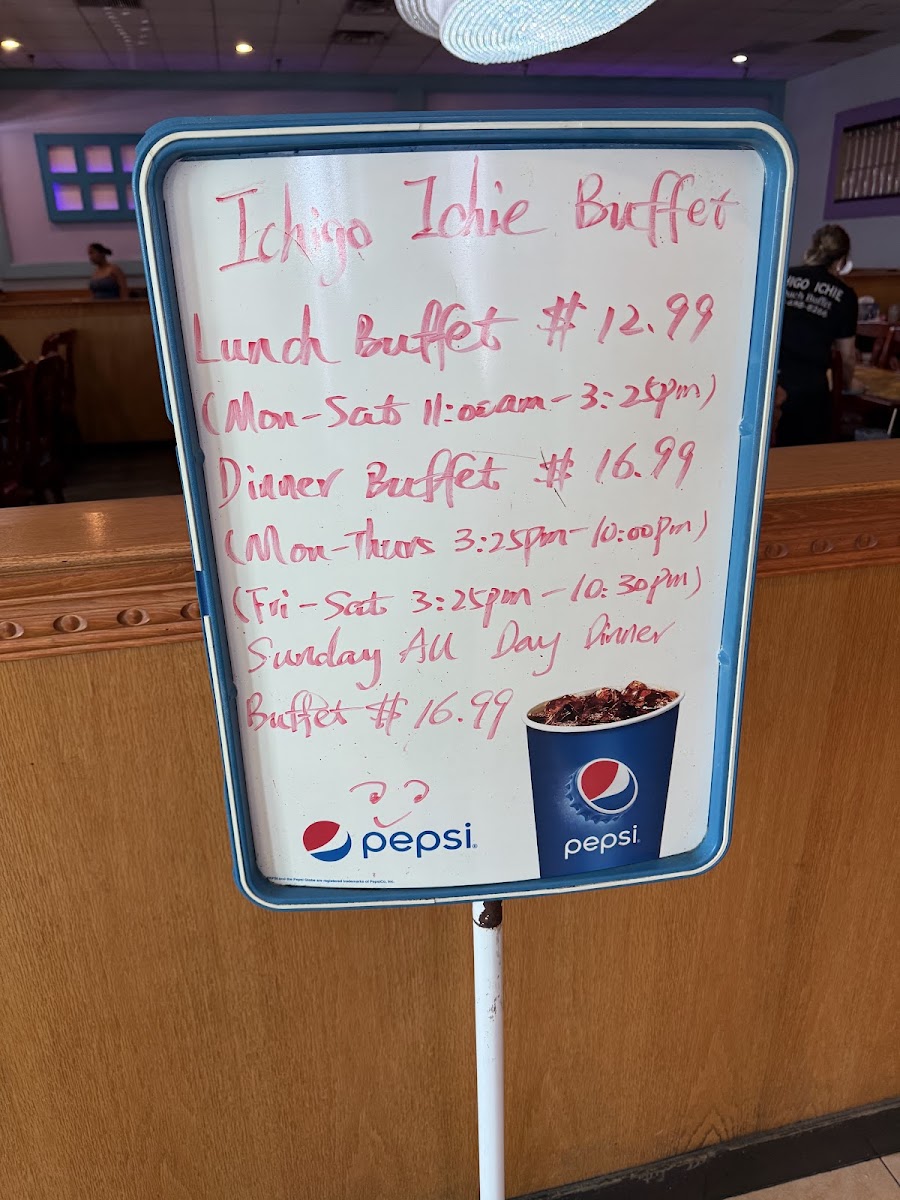 Ichigo Ichie Buffet
Lunch Buffet $ 12.99
(Mon-Sat 11:00am-3:25pm)
Dinner Buffet $ 16.99
(Mon-Thurs 3:25pm-10:00pm)
(Fri-Sat 3:25pm-10:30pm)
Sunday All Day Dinner
Buffet $ 16.99
pepsi
pepsi
HIGO ICHIE